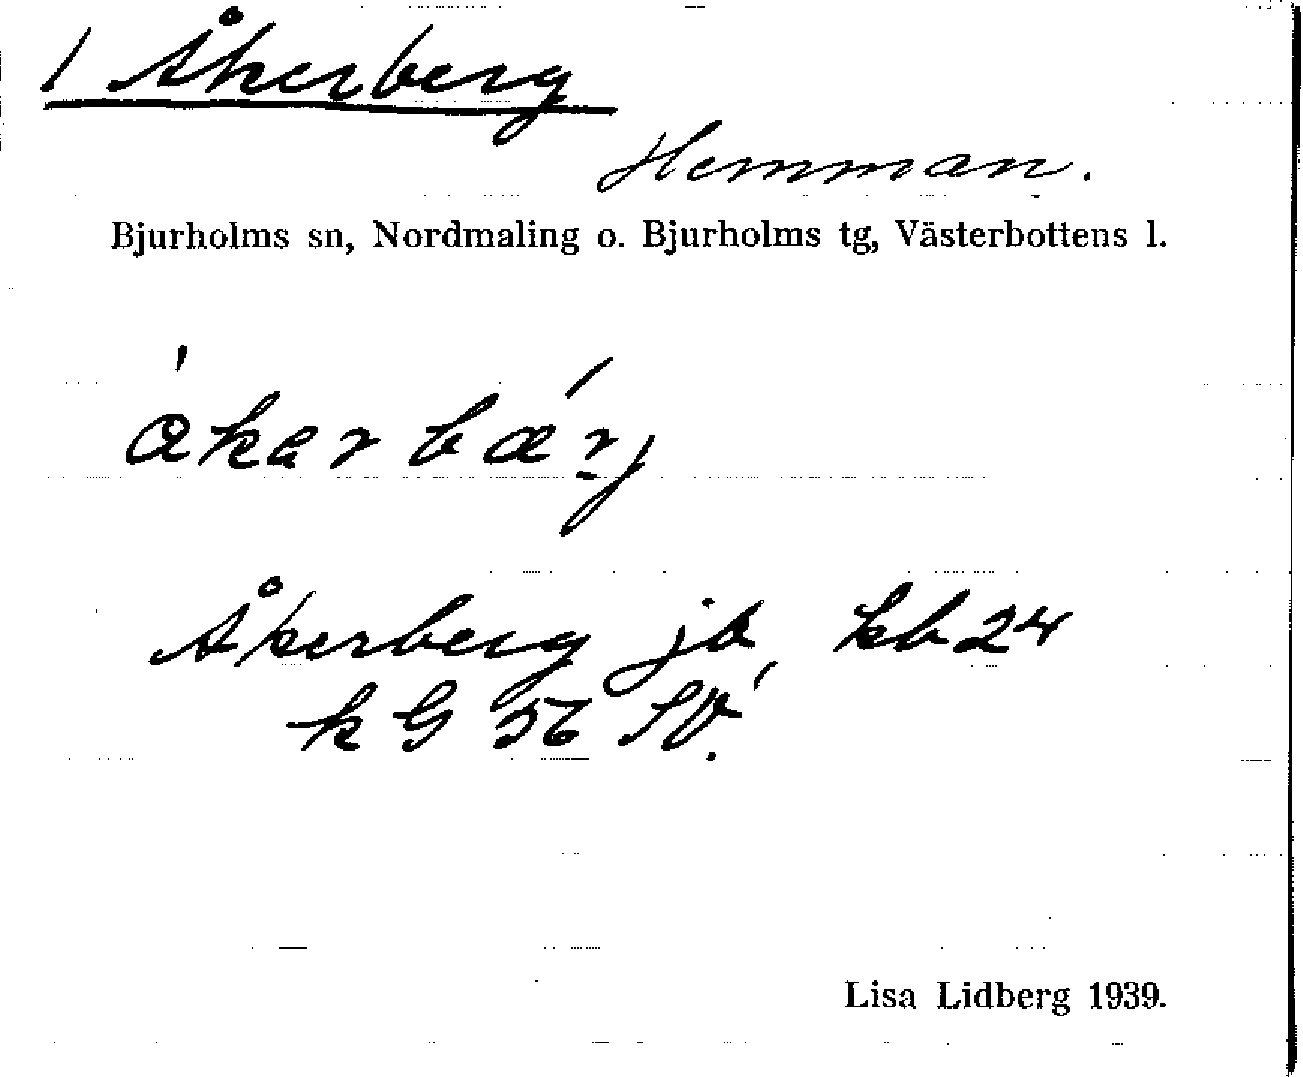 1 Åkerberg
Hemman.
Bjurholms sn, Nordmaling o. Bjurholms tg, Västerbottens l.
Åkerberg jb kb 24
k G 56 SV.
Lisa Lidberg 1939.